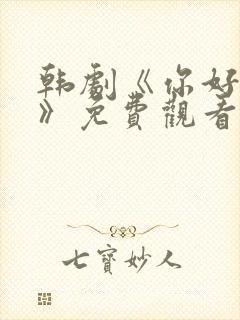 韩劇《你好
》免費觀看
七寶妙人